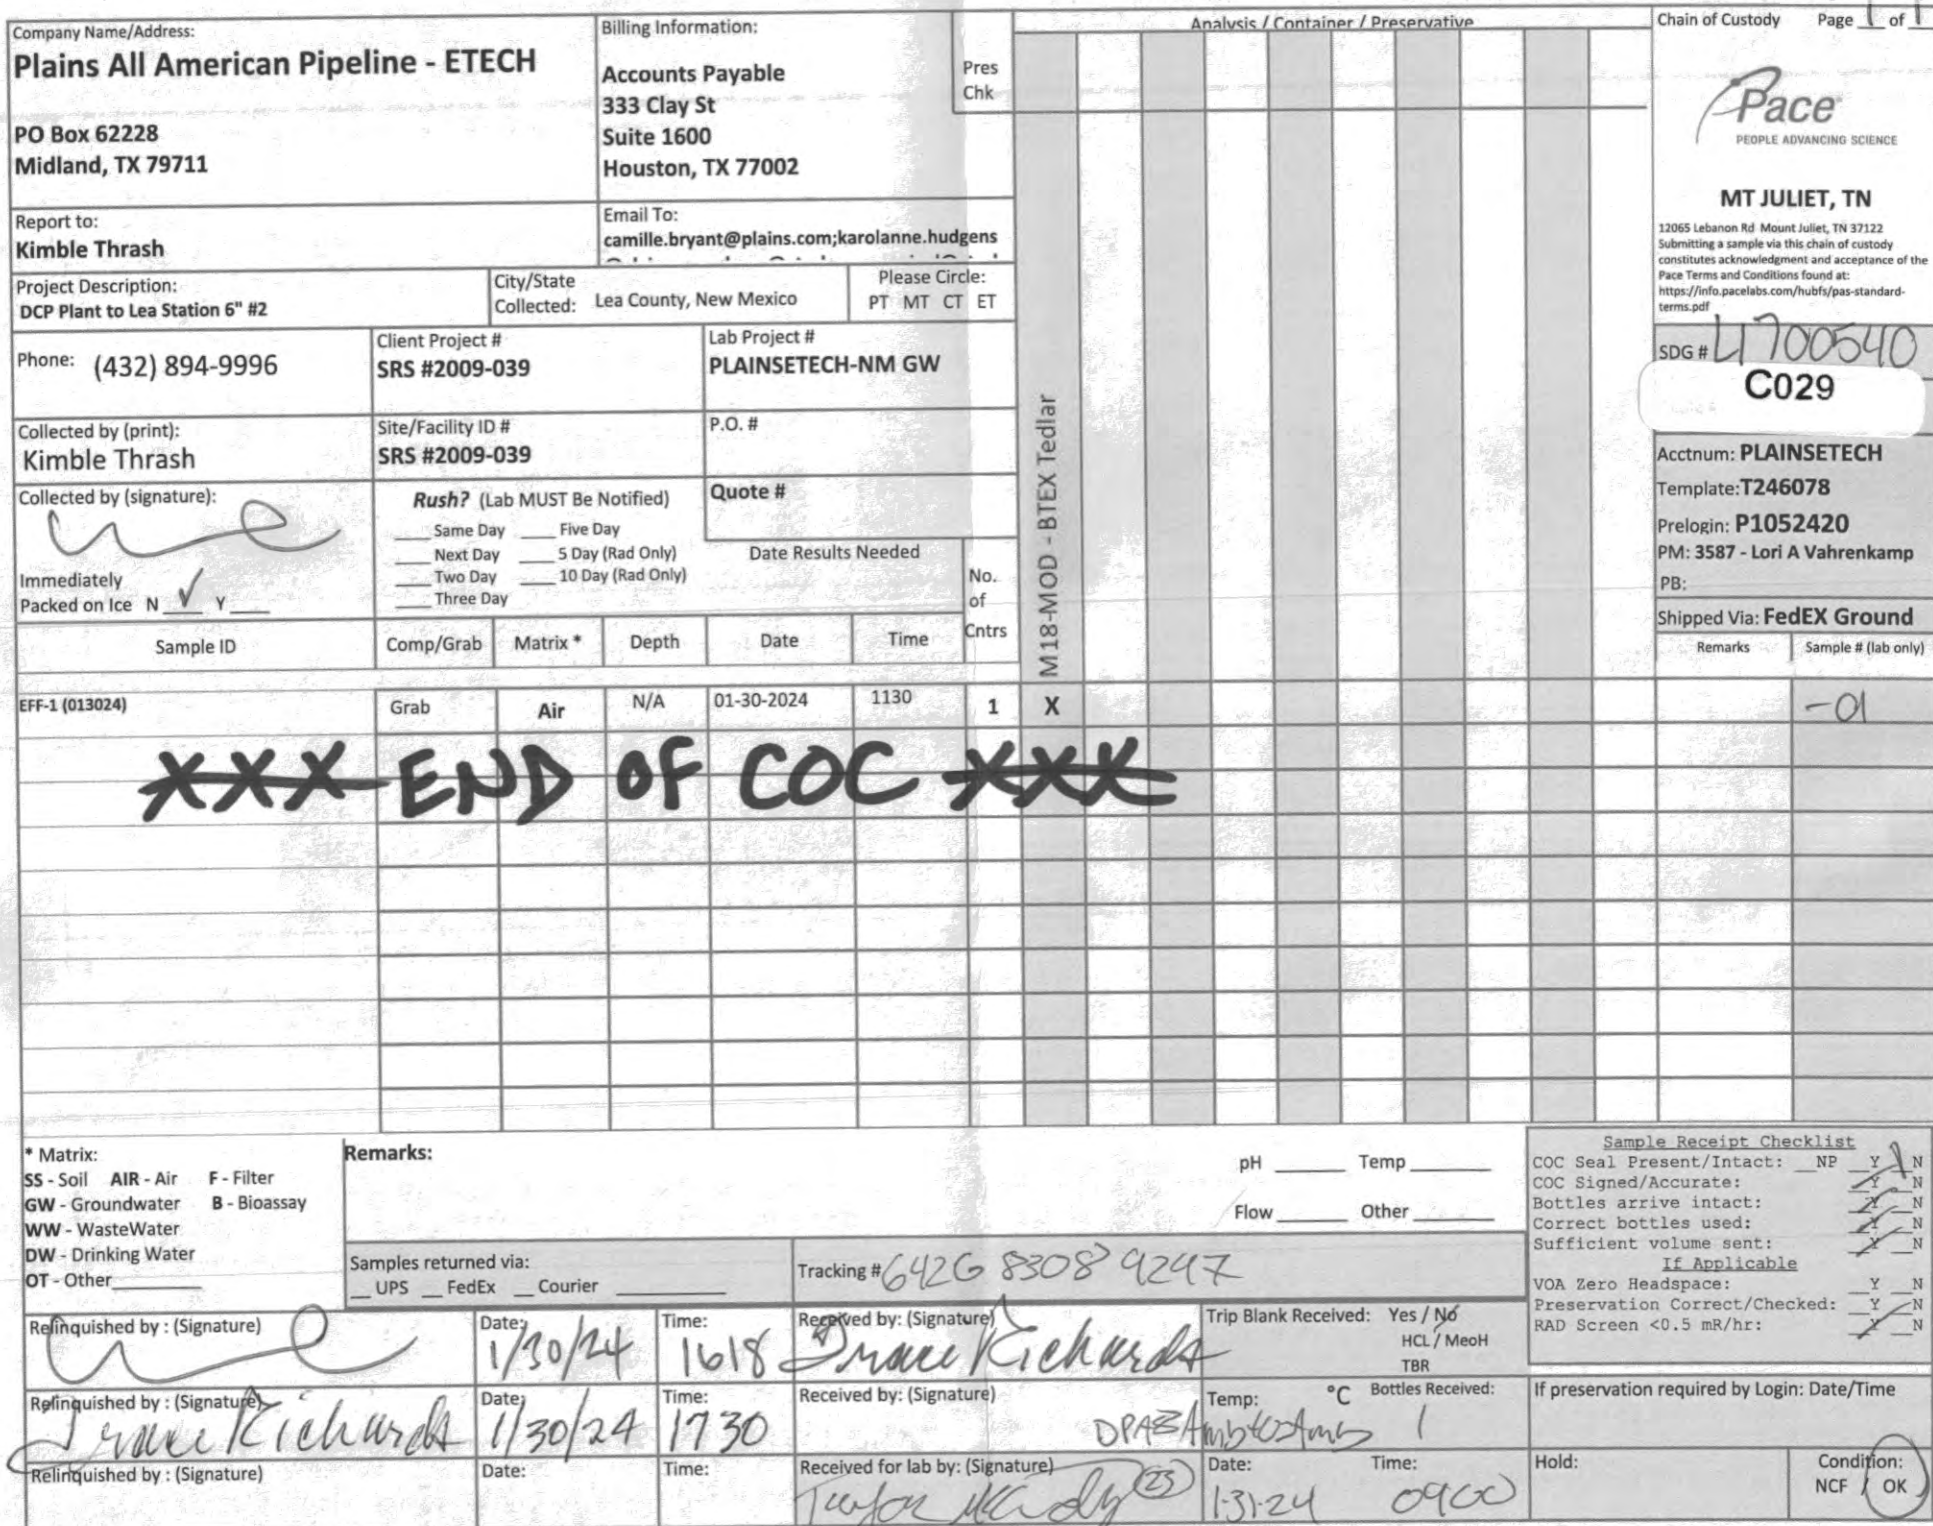 Company Name/Address:
Plains All American Pipeline - ETECH
PO Box 62228
Midland, TX 79711
Billing Information:
Accounts Payable
333 Clay St
Suite 1600
Houston, TX 77002
Pres
Chk
Analysis / Container / Preservative
Chain of Custody Page 1 of 1
Pace
PEOPLE ADVANCING SCIENCE
MT JULIET, TN
12065 Lebanon Rd Mount Juliet, TN 37122
Submitting a sample via this chain of custody
constitutes acknowledgment and acceptance of the
Pace Terms and Conditions found at:
https://info.pacelabs.com/hubfs/pas-standard-
terms.pdf
Report to:
Kimble Thrash
Email To:
camille.bryant@plains.com;karolanne.hudgens
Project Description:
DCP Plant to Lea Station 6" #2
City/State
Collected: Lea County, New Mexico
Please Circle:
PT MT CT ET
Phone: (432) 894-9996
Client Project #
SRS #2009-039
Lab Project #
PLAINSETECH-NM GW
SDG # L1700540
C029
Collected by (print):
Kimble Thrash
Site/Facility ID #
SRS #2009-039
P.O. #
Acctnum: PLAINSETECH
Template:T246078
Prelogin: P1052420
PM: 3587 - Lori A Vahrenkamp
PB:
Shipped Via: FedEX Ground
Collected by (signature):
Rush? (Lab MUST Be Notified)
___ Same Day ___ Five Day
___ Next Day ___ 5 Day (Rad Only)
___ Two Day ___ 10 Day (Rad Only)
___ Three Day
Quote #
Date Results Needed
Immediately
Packed on Ice N ✓ Y ___
No.
of
Cntrs
M18-MOD - BTEX Tedlar
Sample ID Comp/Grab Matrix * Depth Date Time
Remarks Sample # (lab only)
EFF-1 (013024) Grab Air N/A 01-30-2024 1130 1 X -01
XXX END OF COC XXX
* Matrix:
SS - Soil AIR - Air F - Filter
GW - Groundwater B - Bioassay
WW - WasteWater
DW - Drinking Water
OT - Other
Remarks:
pH ___ Temp ___
Flow ___ Other ___
Samples returned via:
__ UPS __ FedEx __ Courier
Tracking # 6426 8308 9247
Sample Receipt Checklist
COC Seal Present/Intact: __NP __Y __N
COC Signed/Accurate: __Y __N
Bottles arrive intact: __Y __N
Correct bottles used: __Y __N
Sufficient volume sent: __Y __N
If Applicable
VOA Zero Headspace: __Y __N
Preservation Correct/Checked: __Y __N
RAD Screen <0.5 mR/hr: __Y __N
Relinquished by : (Signature)
Date: 1/30/24
Time: 1618
Received by: (Signature) Richards
Trip Blank Received: Yes / No
HCL / MeoH
TBR
Relinquished by : (Signature) Richards
Date: 1/30/24
Time: 1730
Received by: (Signature)
Temp: °C Bottles Received:
1
If preservation required by Login: Date/Time
Relinquished by : (Signature)
Date:
Time:
Received for lab by: (Signature)
Date: 1-31-24
Time: 0900
Hold:
Condition:
NCF / OK